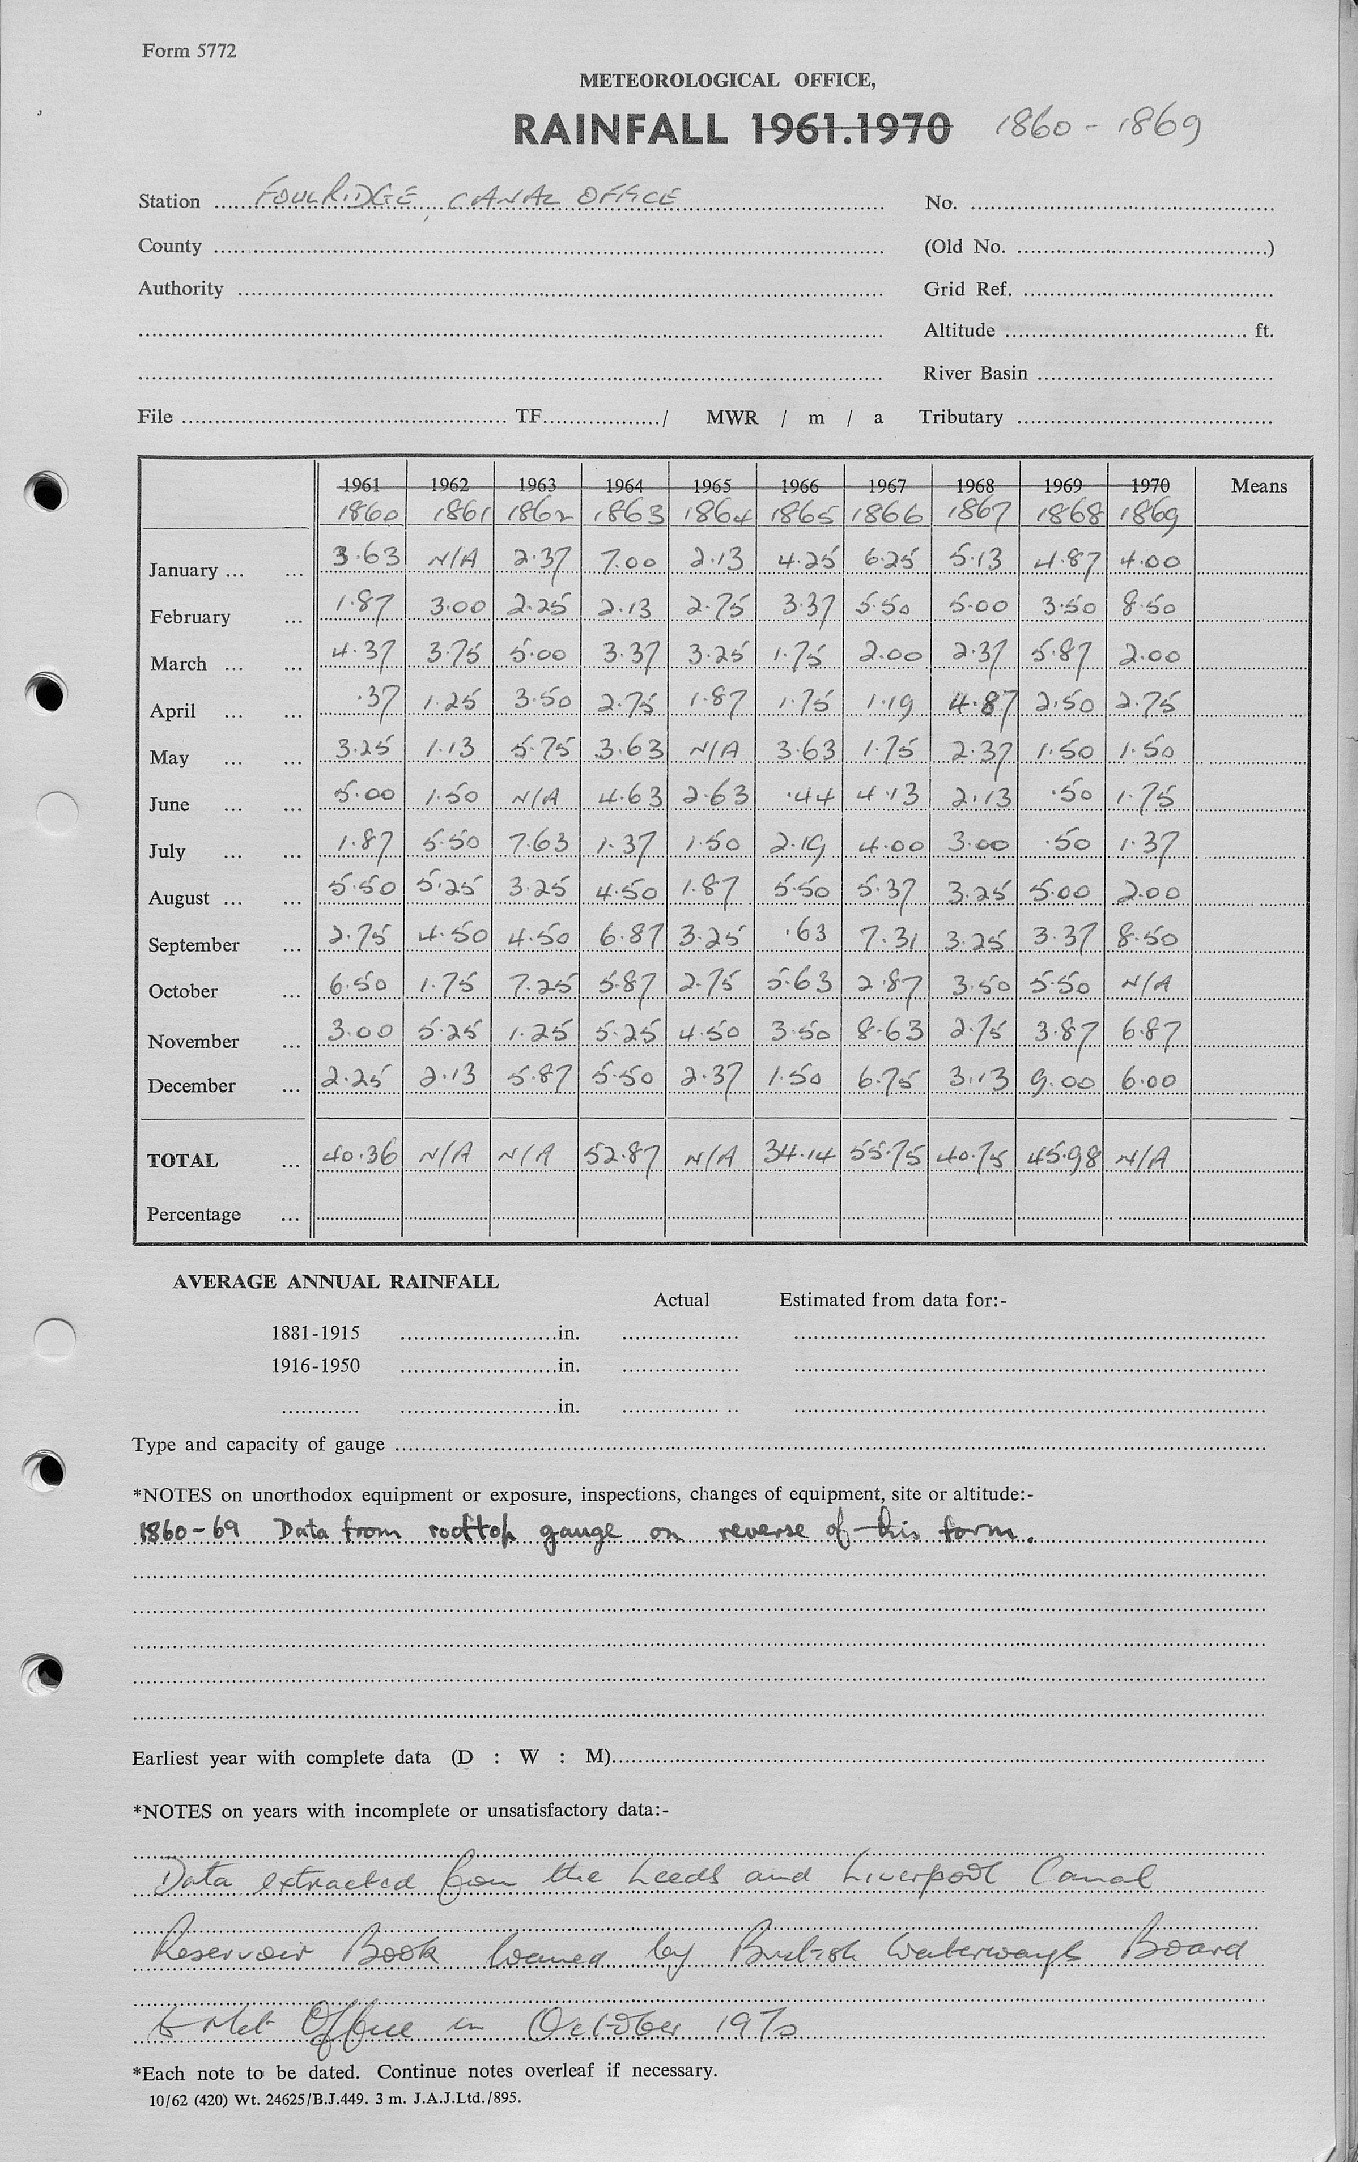 Form 5772
METEOROLOGICAL OFFICE,
RAINFALL 1961.1970 1860 - 1869
Station FOULRIDGE, CANAL OFFICE No.
County (Old No. )
Authority Grid Ref.
Altitude ft.
River Basin
File TF / MWR / m / a Tributary
1961 1962 1963 1964 1965 1966 1967 1968 1969 1970 Means
1860 1861 1862 1863 1864 1865 1866 1867 1868 1869
January ... ... 3.63 N/A 2.37 7.00 2.13 4.25 6.25 5.13 4.87 4.00
February ... 1.87 3.00 2.25 2.13 2.75 3.37 5.50 5.00 3.50 8.50
March ... ... 4.37 3.75 5.00 3.37 3.25 1.75 2.00 2.37 5.87 2.00
April ... ... .37 1.25 3.50 2.75 1.87 1.75 1.19 4.87 2.50 2.75
May ... ... 3.25 1.13 5.75 3.63 N/A 3.63 1.75 2.37 1.50 1.50
June ... ... 5.00 1.50 N/A 4.63 2.63 .44 4.13 2.13 .50 1.75
July ... ... 1.87 5.50 7.63 1.37 1.50 2.19 4.00 3.00 .50 1.37
August ... ... 5.50 5.25 3.25 4.50 1.87 5.50 5.37 3.25 5.00 2.00
September ... 2.75 4.50 4.50 6.87 3.25 .63 7.31 3.25 3.37 8.50
October ... 6.50 1.75 7.25 5.87 2.75 5.63 2.87 3.50 5.50 N/A
November ... 3.00 5.25 1.25 5.25 4.50 3.50 8.63 2.75 3.87 6.87
December ... 2.25 2.13 5.87 5.50 2.37 1.50 6.75 3.13 9.00 6.00
TOTAL ... 40.36 N/A N/A 52.87 N/A 34.14 55.75 40.75 45.98 N/A
Percentage ...
AVERAGE ANNUAL RAINFALL
Actual Estimated from data for:-
1881-1915 in.
1916-1950 in.
in.
Type and capacity of gauge
*NOTES on unorthodox equipment or exposure, inspections, changes of equipment, site or altitude:-
1860-69 Data from rooftop gauge on reverse of this form.
Earliest year with complete data (D : W : M)
*NOTES on years with incomplete or unsatisfactory data:-
Data extracted from the Leeds and Liverpool Canal
Reservoir Book loaned by British Waterways Board
to Met Office in October 1970
*Each note to be dated. Continue notes overleaf if necessary.
10/62 (420) Wt. 24625/B.J.449. 3 m. J.A.J.Ltd./895.